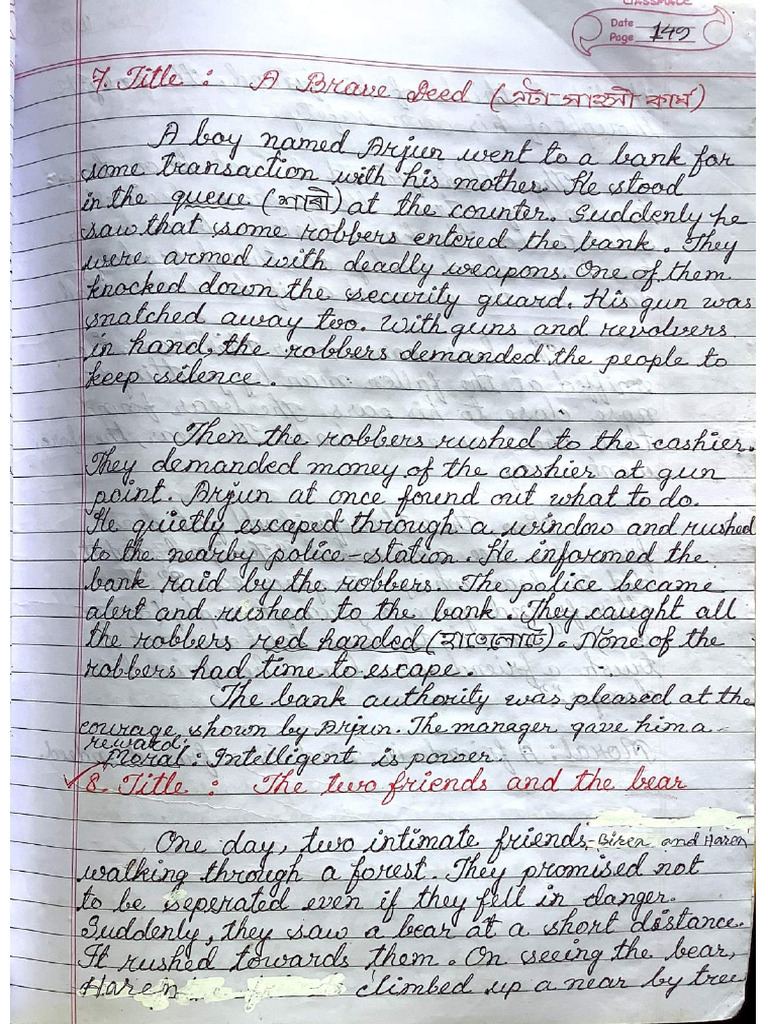 classmate
Date
Page 149
7. Title : A Brave Deed (এটা সাহসী কাৰ্য)
A boy named Arjun went to a bank for
some transaction with his mother. He stood
in the queue (শাৰী) at the counter. Suddenly he
saw that some robbers entered the bank. They
were armed with deadly weapons. One of them
knocked down the security guard. His gun was
snatched away too. With guns and revolvers
in hand, the robbers demanded the people to
keep silence.
Then the robbers rushed to the cashier.
They demanded money of the cashier at gun
point. Arjun at once found out what to do.
He quietly escaped through a window and rushed
to the nearby police-station. He informed the
bank raid by the robbers. The police became
alert and rushed to the bank. They caught all
the robbers red handed (হাতেলোটে). None of the
robbers had time to escape.
The bank authority was pleased at the
courage shown by Arjun. The manager gave him a
reward.
Moral : Intelligent is power.
8. Title : The two friends and the bear
One day, two intimate friends - Biren and Haren
walking through a forest. They promised not
to be seperated even if they fell in danger.
Suddenly, they saw a bear at a short distance.
It rushed towards them. On seeing the bear,
Haren climbed up a near by tree